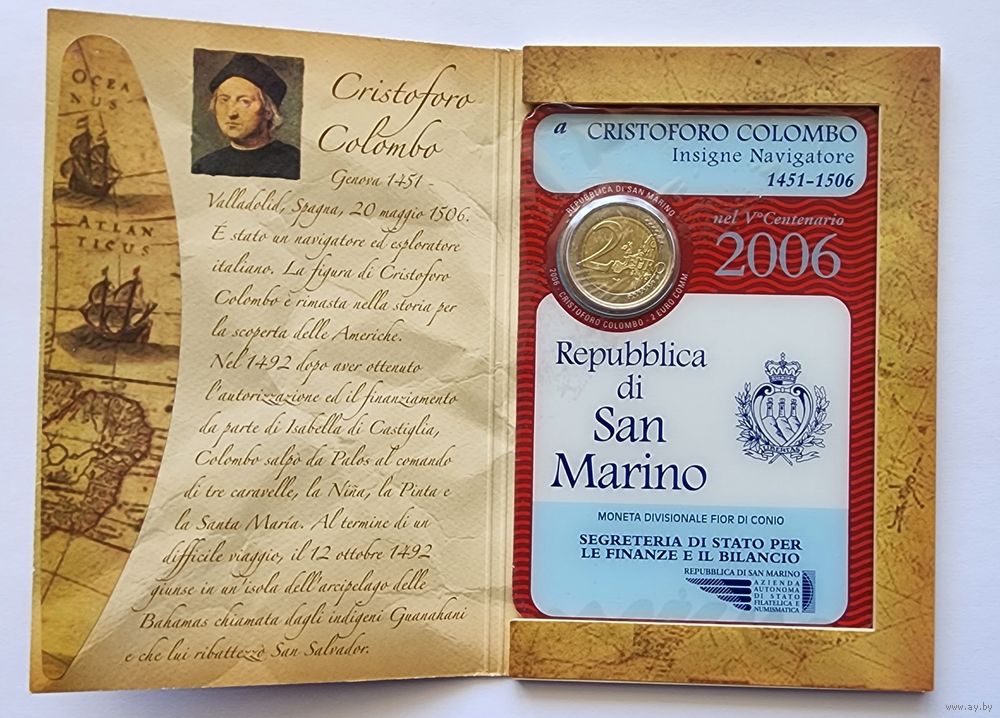 OCEA
NUS
ATLAN
TICUS
Cristoforo
Colombo
Genova 1451 -
Valladolid, Spagna, 20 maggio 1506.
E stato un navigatore ed esploratore
italiano. La figura di Cristoforo
Colombo è rimasta nella storia per
la scoperta delle Americhe.
Nel 1492 dopo aver ottenuto
l'autorizzazione ed il finanziamento
da parte di Isabella di Castiglia,
Colombo salpò da Palos al comando
di tre caravelle, la Niña, la Pinta e
la Santa Maria. Al termine di un
difficile viaggio, il 12 ottobre 1492
giunse in un'isola dell'arcipelago delle
Bahamas chiamata dagli indigeni Guanahani
e che lui ribattezzò San Salvador.
a CRISTOFORO COLOMBO
Insigne Navigatore
1451-1506
nel V° Centenario
2006
REPUBBLICA DI SAN MARINO
2006 - CRISTOFORO COLOMBO - 2 EURO COMM.
2 EURO
Repubblica
di
San
Marino
LIBERTAS
MONETA DIVISIONALE FIOR DI CONIO
SEGRETERIA DI STATO PER
LE FINANZE E IL BILANCIO
REPUBBLICA DI SAN MARINO
AZIENDA
AUTONOMA
DI STATO
FILATELICA E
NUMISMATICA
www.ay.by